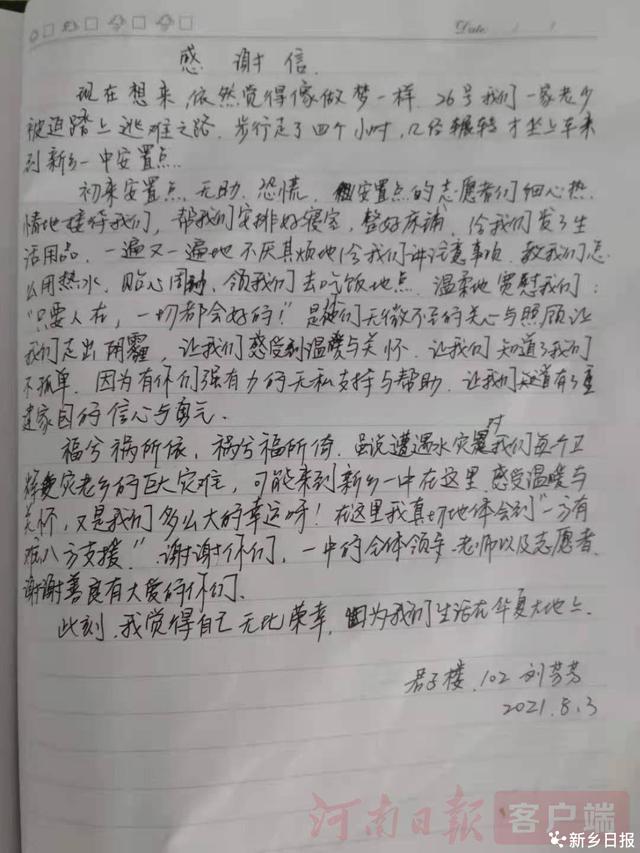 Date
感谢信.
现在想来,依然觉得像做梦一样.26号我们一家老少
被迫踏上逃难之路.步行走了四个小时,几经辗转才坐上车来
到新乡一中安置点.
初来安置点,无助、恐慌.安置点的志愿者们细心热
情地接待我们,帮我们安排好寝室,整好床铺,给我们发了生
活用品.一遍又一遍地不厌其烦地给我们讲注意事项.教我们怎
么用热水.贴心周到,领我们去吃饭地点.温柔地宽慰我们:
“只要人在,一切都会好的!”是他们无微不至的关心与照顾让
我们走出阴霾,让我们感受到温暖与关怀.让我们知道了我们
不孤单.因为有你们强有力的无私支持与帮助.让我们知道有了重
建家园的信心与勇气.
福兮祸所依,祸兮福所倚.虽说遭遇水灾对我们每个卫
辉受灾老乡的巨大灾难,可能来到新乡一中在这里,感受温暖与
关怀,又是我们多么大的幸运呀!在这里我真切地体会到“一方有
难八方支援!”谢谢你们,一中的全体领导、老师以及志愿者.
谢谢善良有大爱的你们.
此刻,我觉得自己无比荣幸,因为我们生活在华夏大地上.
君子楼.102 刘芳芳
2021.8.3
河南日报 客户端
新乡日报